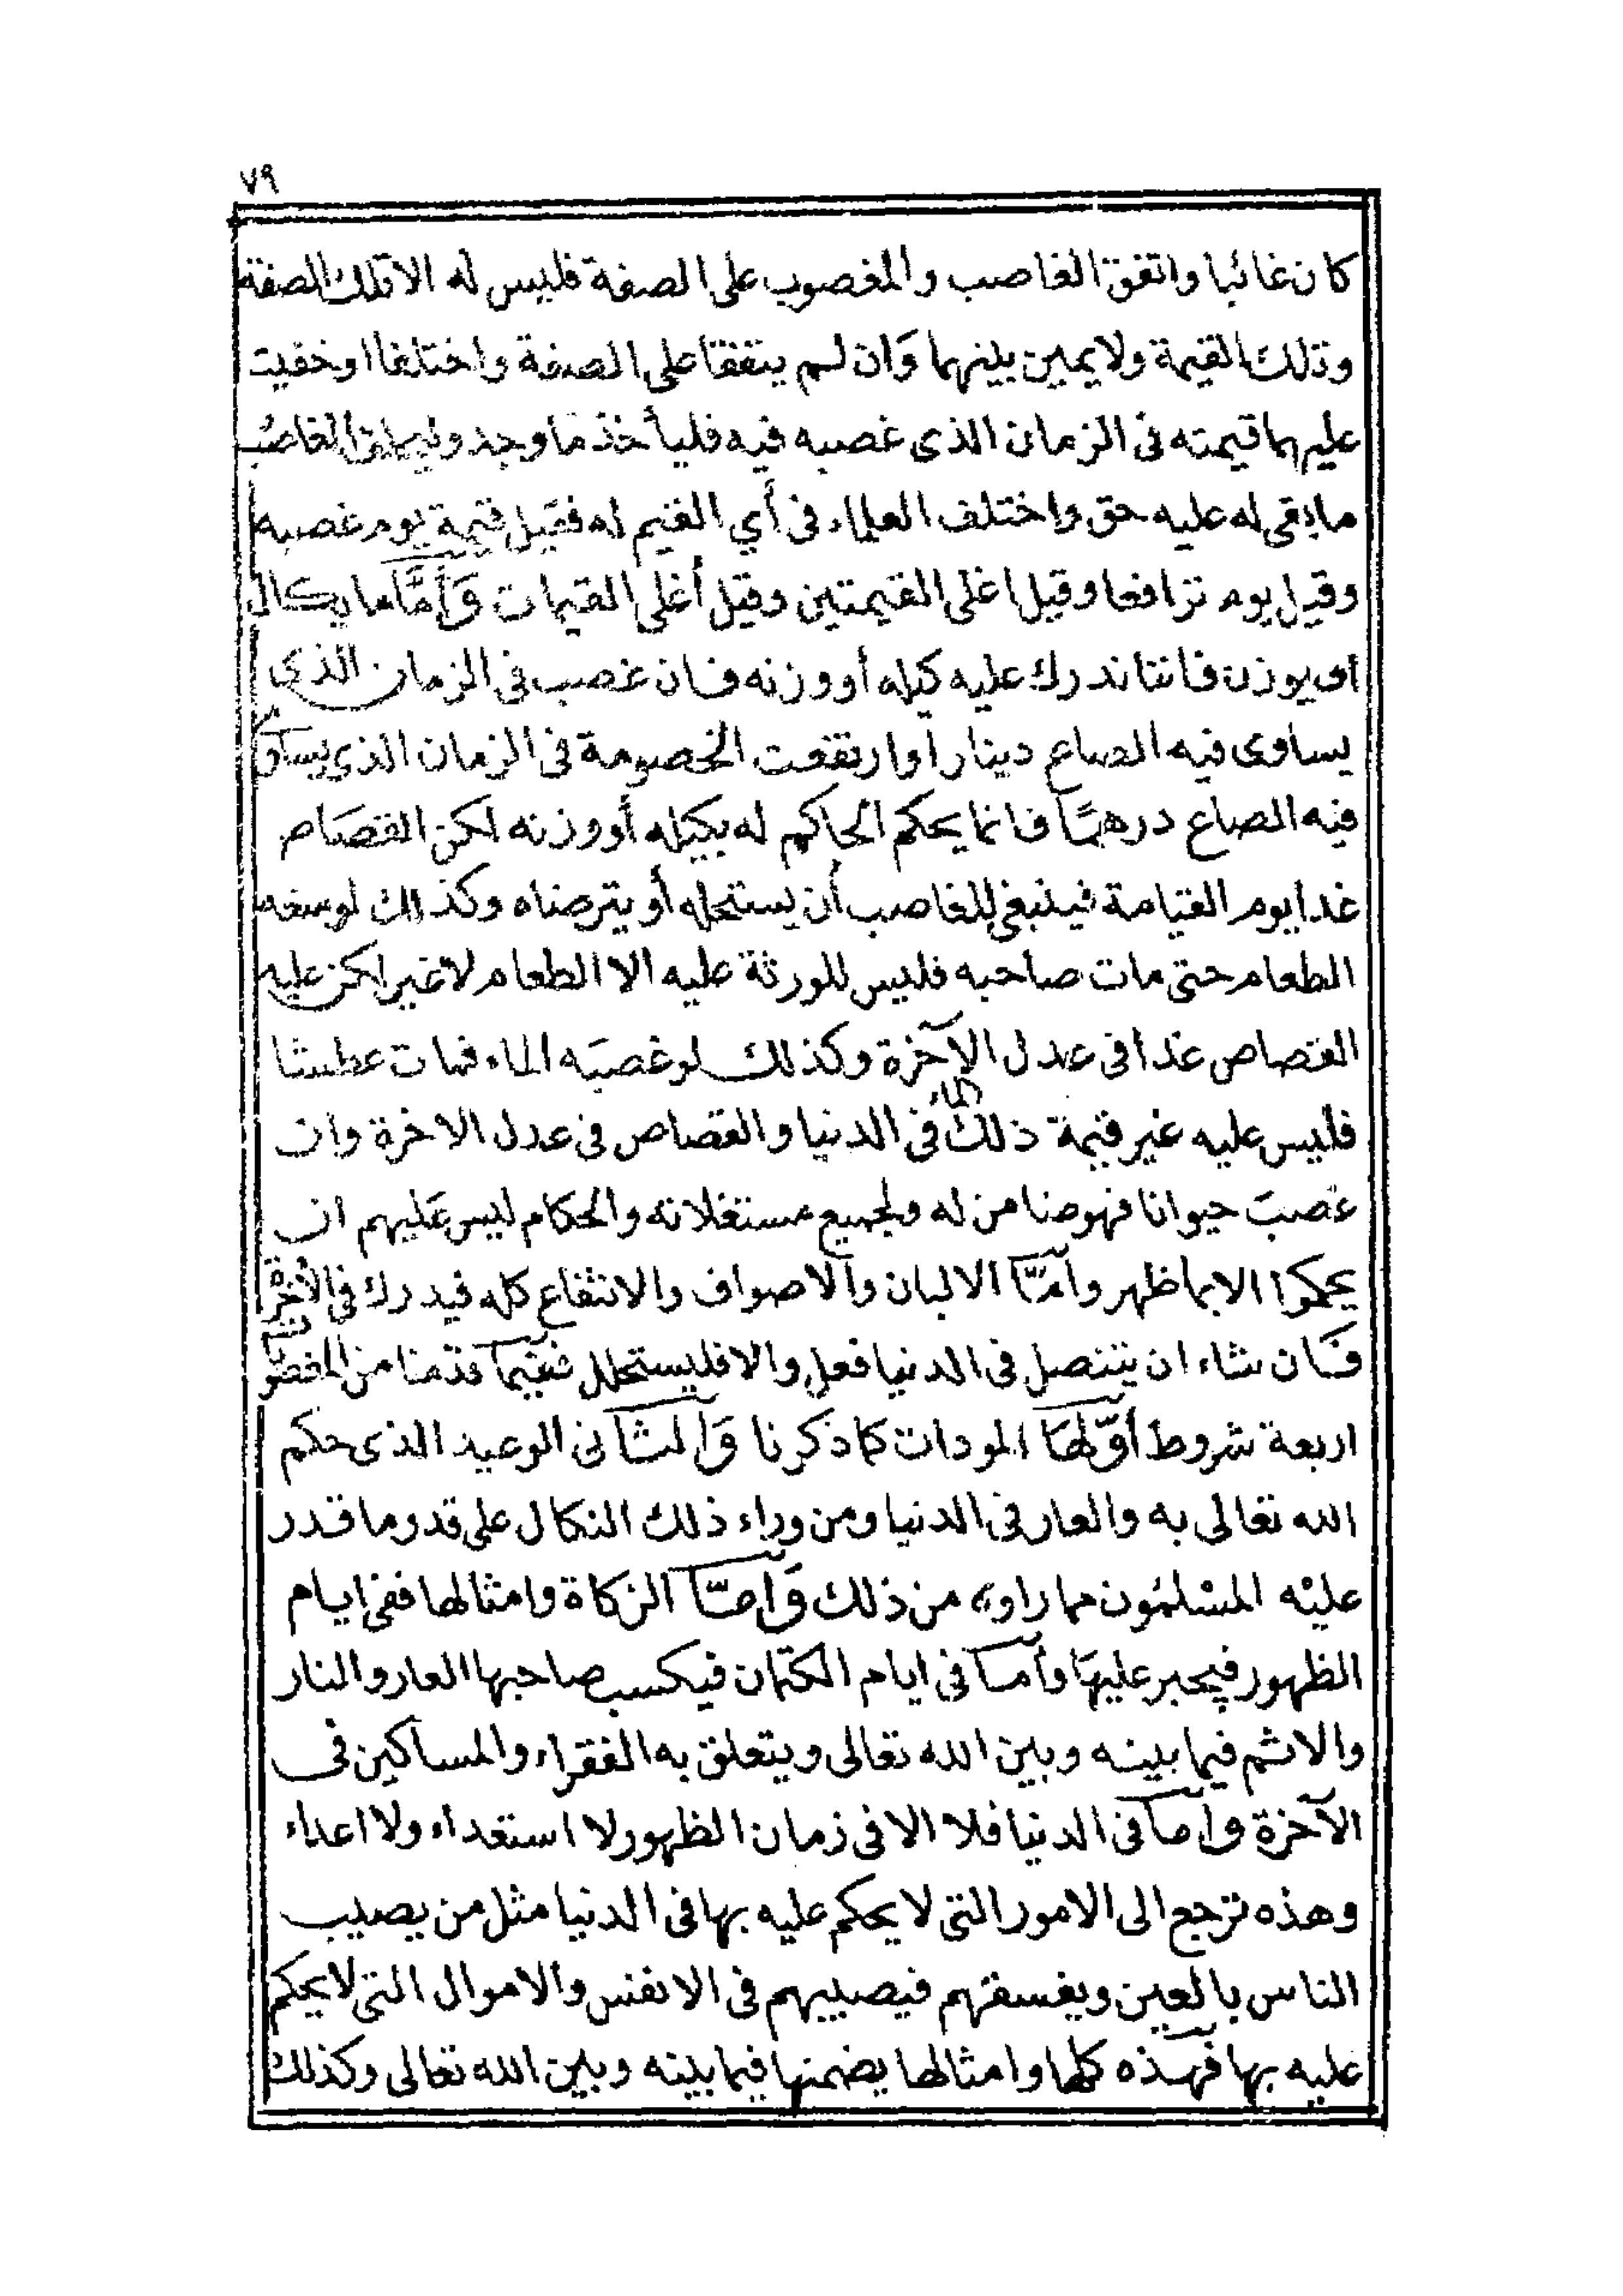 ٧٩
كان غائبا واتفق الغاصب والمغصوب على الصفة فليس له الا تلك الصفة
وتلك القيمة ولا يمين بينهما وَان لم يتفقا على الصفة واختلفا او خفيت
عليهما قيمته فى الزمان الذى غصبه فيه فليأخذ ما وجد وليحلف الغاصب
ما بقى له عليه حق واختلف العلماء فى أي القيم له فقيل قيمة يوم غصبه
وقيل يوم ترافعا وقيل اغلى القيمتين وقيل أغلى القيمات وَأمَّا ما يكال
أو يوزن فانما ندرك عليه كيله أو وزنه فان غصب فى الزمان الذى
يساوى فيه الصاع دينارا وارتفعت الخصومة فى الزمان الذى يساوى
فيه الصاع درهمًا فانما يحكم الحاكم له بكيله أو وزنه لكن القصَاص
غدا يوم القيامة فينبغى للغاصب أن يستحله أو يترضاه وكذلك لو منعه
الطعام حتى مات صاحبه فليس للورثة عليه الا الطعام لا غير لكن عليه
القصاص غدا فى عدل الآخرة وكذلك لو غصبَه الماء فمات عطشا
فليس عليه غير قيمة ذلك الماء فى الدنيا والقصاص فى عدل الاخرة وان
غصبَ حيوانا فهو ضامن له ولجميع مستغلاته والحكام ليس عَليهم ان
يحكموا الا بما ظهر وأمَّا الالبان والاصواف والانتفاع كله فيدرك فى الأخرة
فَان شاء ان يتنصل فى الدنيا فعل والا فليستحلل ففيما قدمنا من المغصوب
اربعة شروط أوَّلهَا المودات كما ذكرنا وَالثانى الوعيد الذى حكم
الله تعالى به والعار فى الدنيا ومن وراء ذلك النكال على قدر ما قدر
عليْه المسْلمُون مما راوه من ذلك وَامَّا الزكاة وامثالها ففى ايام
الظهور فيجبر عليهَا وأما فى ايام الكتمان فيكسب صاحبها العار والنار
والاثم فيما بينه وبين الله تعالى ويتعلق به الفقراء والمساكين فى
الآخرة وأما فى الدنيا فلا الا فى زمان الظهور لا استعداء ولا اعداء
وهذه ترجع الى الامور التى لا يحكم عليه بها فى الدنيا مثل من يصيب
الناس بالعين ويفسقهم فيصيبهم فى الانفس والاموال التى لا يحكم
عليه بها فهذه كلها وامثالها يضمنها فيما بينه وبين الله تعالى وكذلك